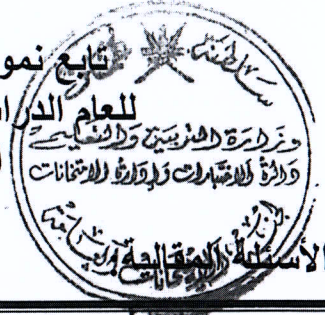 تابع نمو
سلطنة عمان
للعام الدرا
وزارة التربية والتعليم
دائرة الاختبارات وإدارة الامتحانات
الأسئلة المقالية